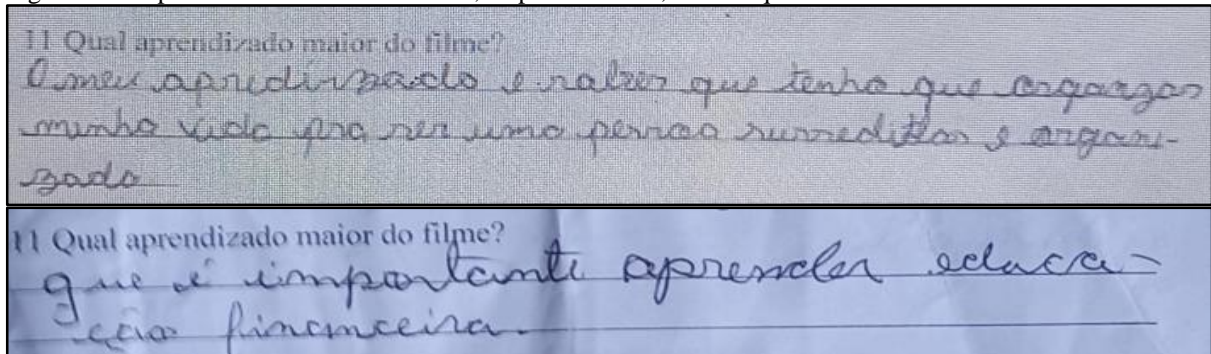 11 Qual aprendizado maior do filme?
O meu apredirzado e saber que tenho que
minha vida pra ser uma pessoa e organi-
zado
11 Qual aprendizado maior do filme?
que é importante aprender educa-
ção financeira.